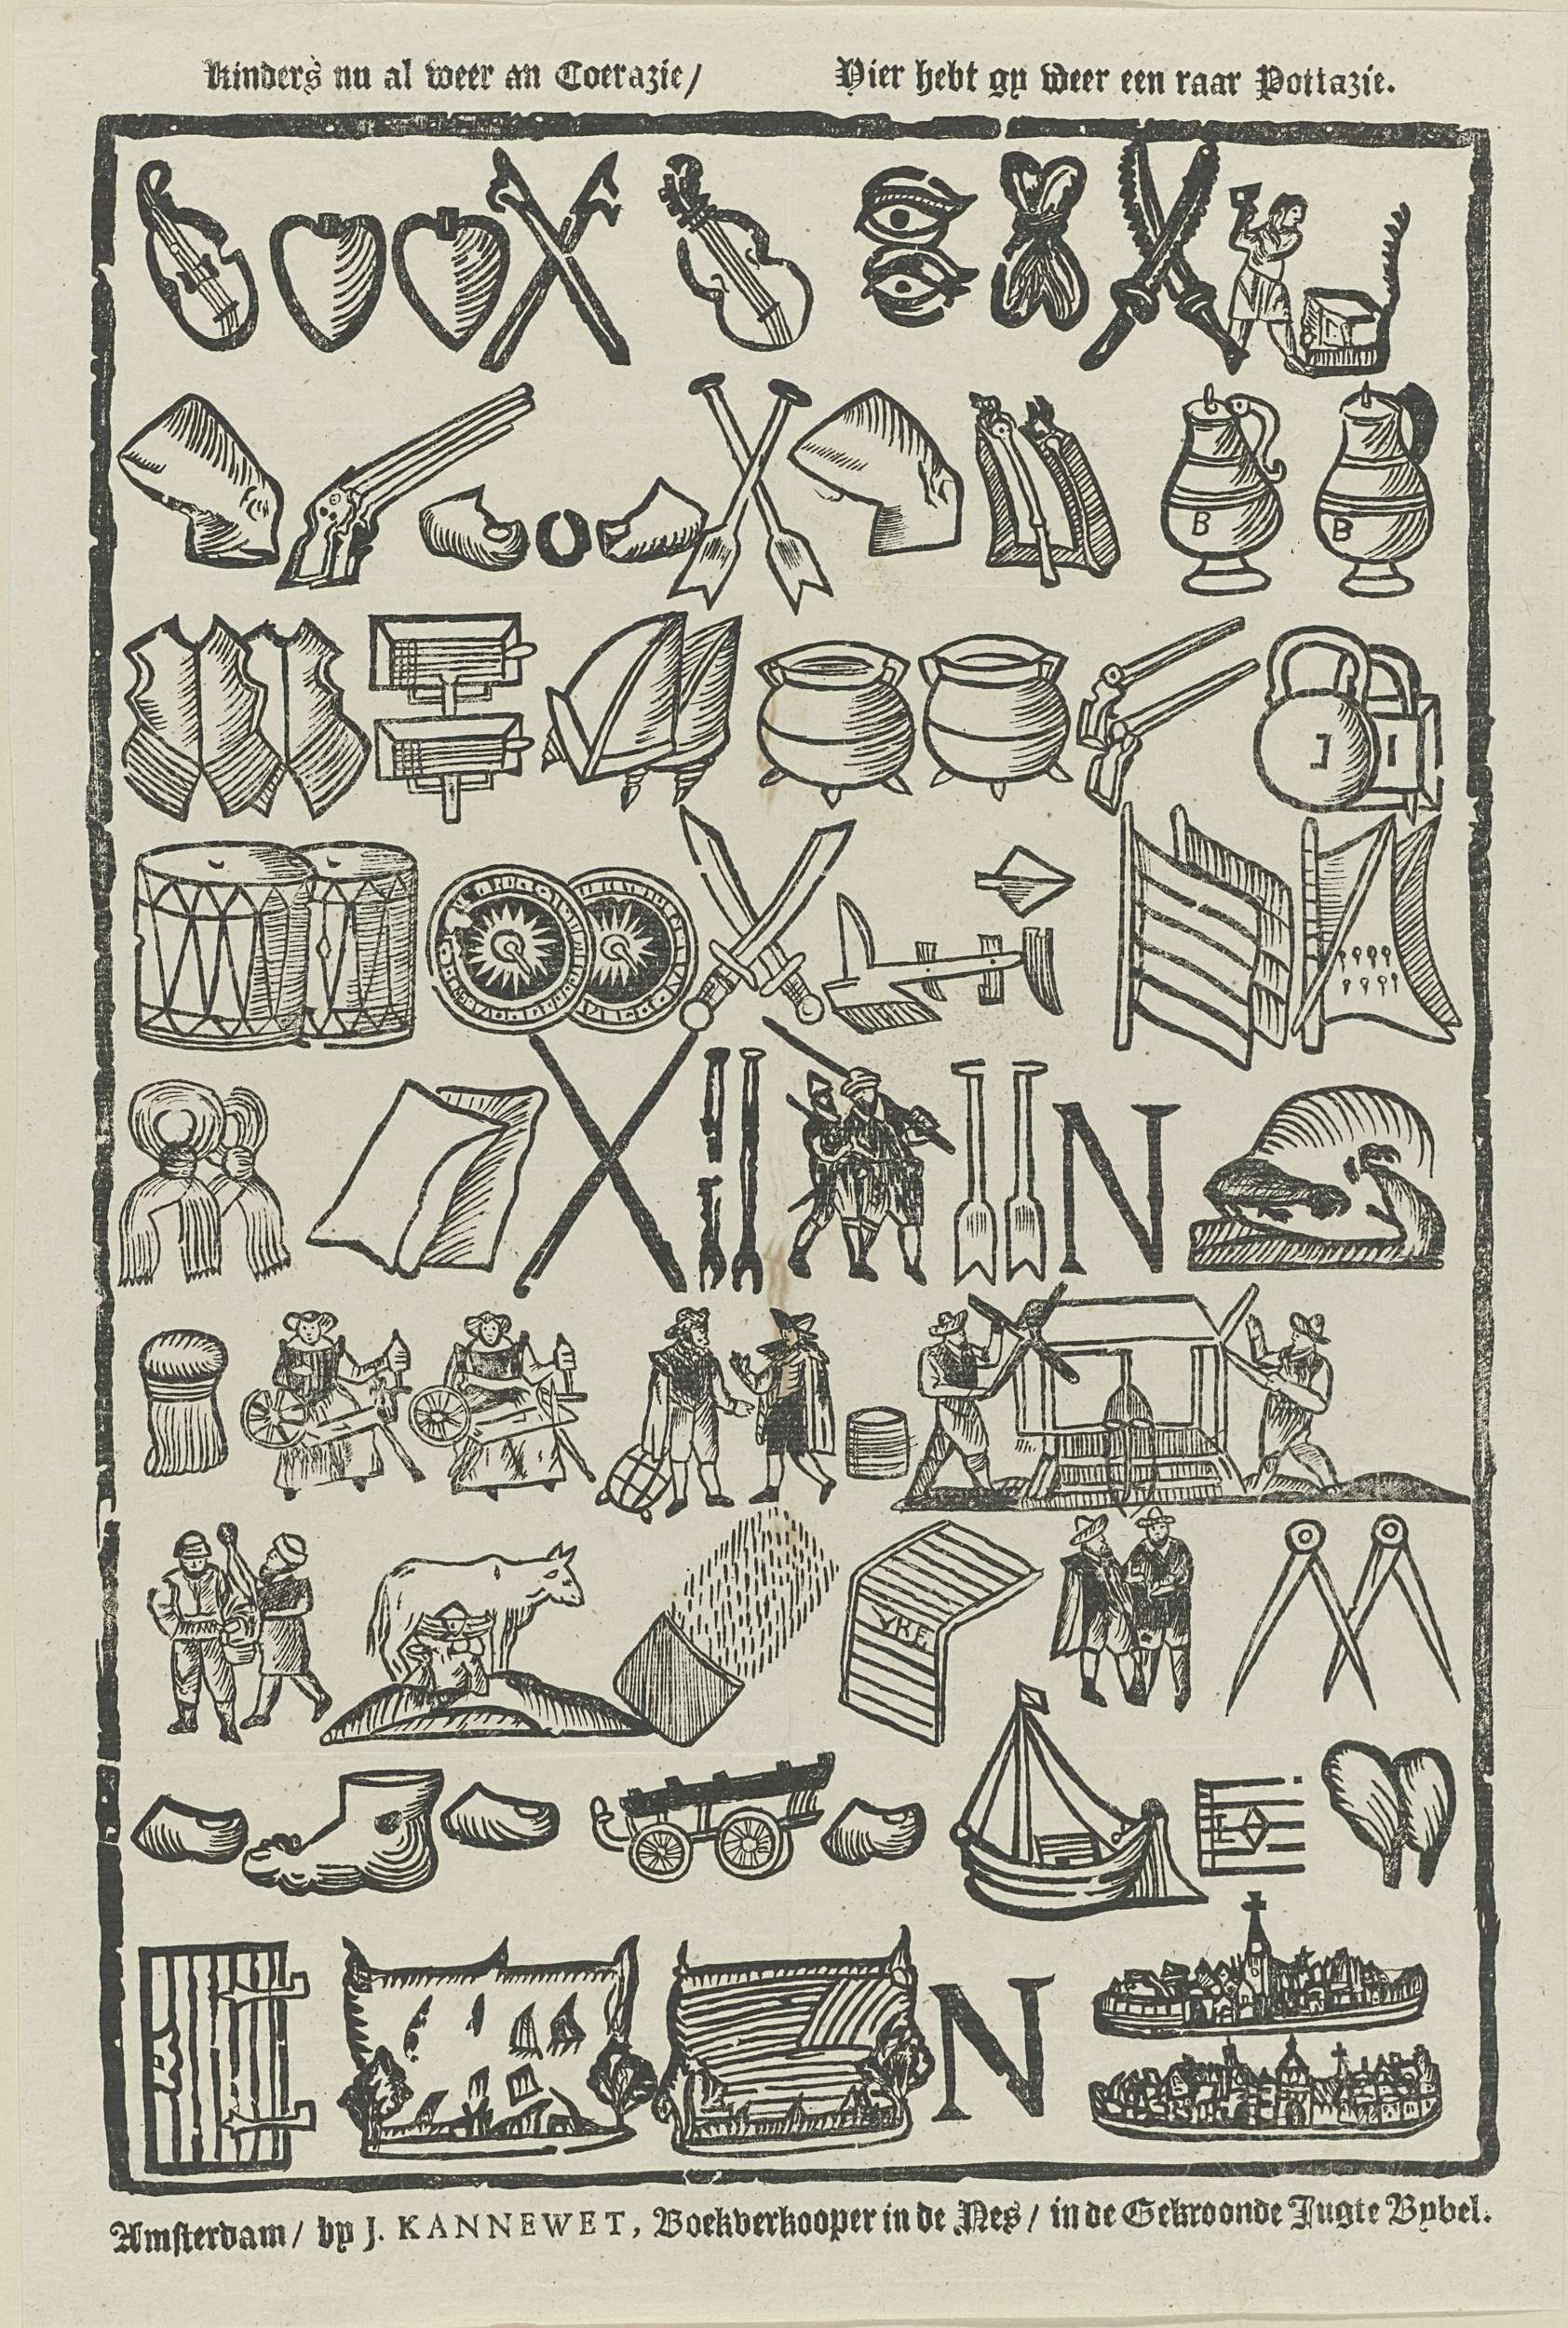 Kinders nu al weer an Coerazie/ Hier hebt gy weer een raar Pottazie.
B B
N
YKE
N
Amsterdam / by J. KANNEWET, Boekverkooper in de Nes / in de Gekroonde Jugte Bybel.